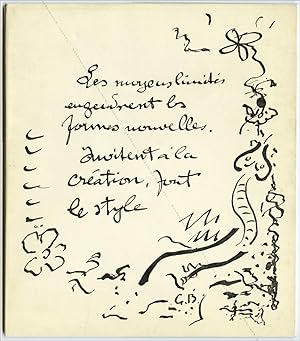 Les moyens limités
engendrent les
formes nouvelles,
invitent à la
création, font
le style
G.B